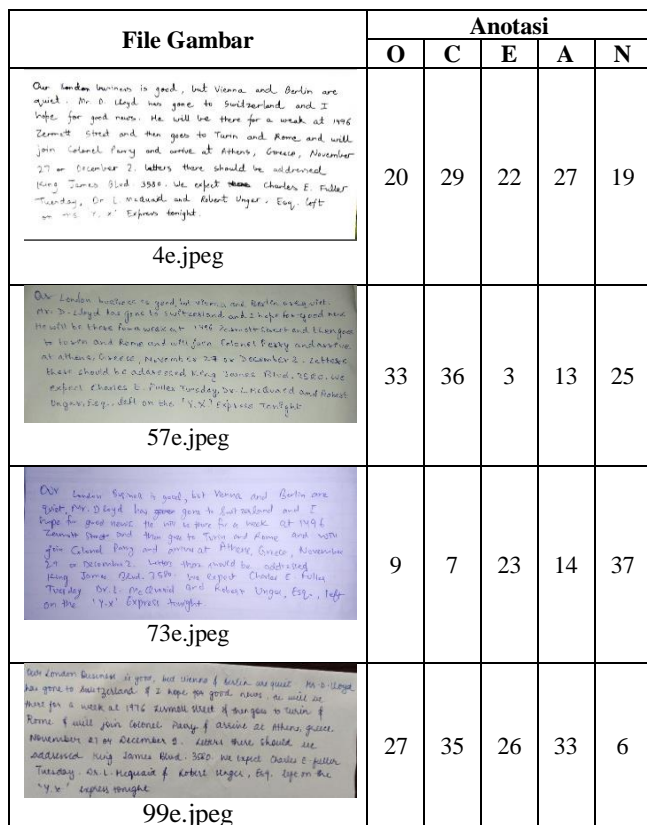 File Gambar
Anotasi
O C E A N
Our London business is good, but Vienna and Berlin are
quiet. Mr. D. Lloyd has gone to Switzerland and I
hope for good news. He will be there for a weak at 1496
Zermott Street and then goes to Turin and Rome and will
join Colonel Parry and arrive at Athens, Greece, November
27 or December 2. Letters there should be addressed
King James Blvd. 3580. We expect Charles E. Fuller
Tuesday, Dr. L. McQuaid and Robert Unger, Esq. left
Express tonight.
20 29 22 27 19
4e.jpeg
Our London business is good, but vienna and Berlin are quiet.
Mr. D. Lloyd has gone to switzerland and I hope for good news
He will be there for a week at 1496 Zermott street and then goes
to turin and Rome and will join Colonel Perry and arrive
at athens, Greece, November 27 or December 2. Letters
there should be addressed King James Blvd. 3580. we
expect Charles E. Fuller Tuesday, Dr. L. McQuaid and Robert
Unger, Esq., left on the 'Y.X' Express Tonight
33 36 3 13 25
57e.jpeg
Our London Business is good, but Vienna and Berlin are
quiet, Mr. D Lloyd has gone to Switzerland and I
hope for good news. He will be there for a week at 1496
Zermott Street and then goes to Turin and Rome and will
join Colonel Parry and arrive at Athens, Greece, November
27 or December 2. Letters there should be addressed
King James Blvd. 3580. We expect Charles E. Fuller,
Tuesday Dr. L. McQuaid and Robert Unger, Esq., left
on the 'Y.X' Express tonight
9 7 23 14 37
73e.jpeg
Our London Business is good, but vienna & Berlin are quiet. Mr. D. Lloyd
has gone to Switzerland & I hope for good news. He will be
there for a week at 1496 Zermott street & then goes to Turin &
Rome & will join Colonel Parry & arrive at Athens, greece
November 27 or December 2. Letters there should be
addressed King James Blvd. 3580. We expect Charles E. fuller
Tuesday. Dr. L. McQuaid & Robert Unger, Esq. left on the
'Y.X' express tonight
27 35 26 33 6
99e.jpeg